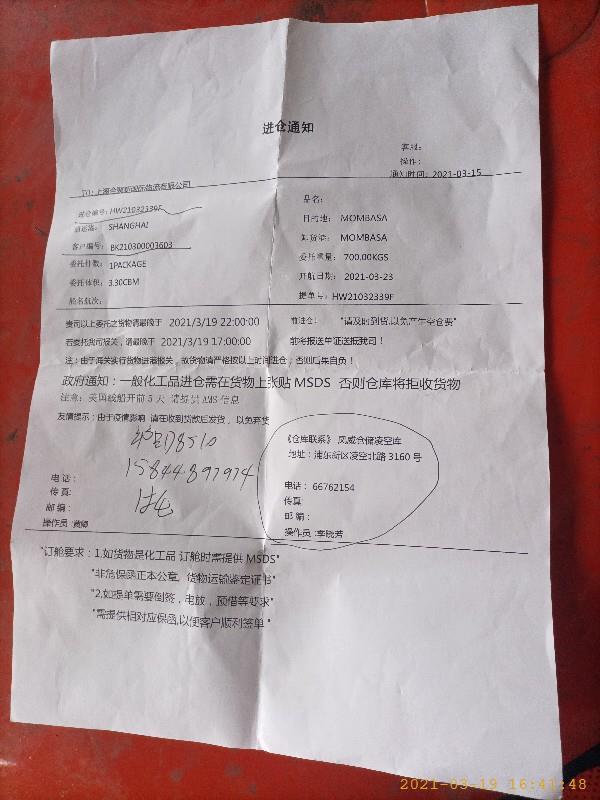 进仓通知
客服:
操作:
通知时间: 2021-03-15
TO: 上海 国际物流有限公司
进仓编号: HW21032339F
品名:
启运港: SHANGHAI
目的地: MOMBASA
客户编号: BK210300003603
卸货港: MOMBASA
委托件数: 1PACKAGE
委托重量: 700.00KGS
委托体积: 3.30CBM
开航日期: 2021-03-23
船名航次:
提单号: HW21032339F
贵司以上委托之货物请最晚于 2021/3/19 22:00:00 前进仓: "请及时到货,以免产生空仓费"
若委托我司报关,请最晚于 2021/3/19 17:00:00 前将报送单证送报我司!
注:由于海关实行货物进港报关,故货物请严格按以上时间进仓,否则后果自负!
政府通知:一般化工品进仓需在货物上张贴 MSDS 否则仓库将拒收货物
注意:美国线船开前 5 天 请提供 AMS 信息
友情提示:由于疫情影响 请在收到货款后发货,以免弃货
D8510
15844897974
电话:
传真:
邮编:
操作员:黄卿
《仓库联系》 凤威仓储凌空库
地址:浦东新区凌空北路 3160 号
电话: 66762154
传真:
邮编:
操作员:李晓芳
"订舱要求:1.如货物是化工品 订舱时需提供 MSDS"
"非危保函正本公章, 货物运输鉴定证书"
"2.如提单需要倒签,电放,预借等要求"
"需提供相对应保函,以便客户顺利签单"
2021-03-19 16:41:48